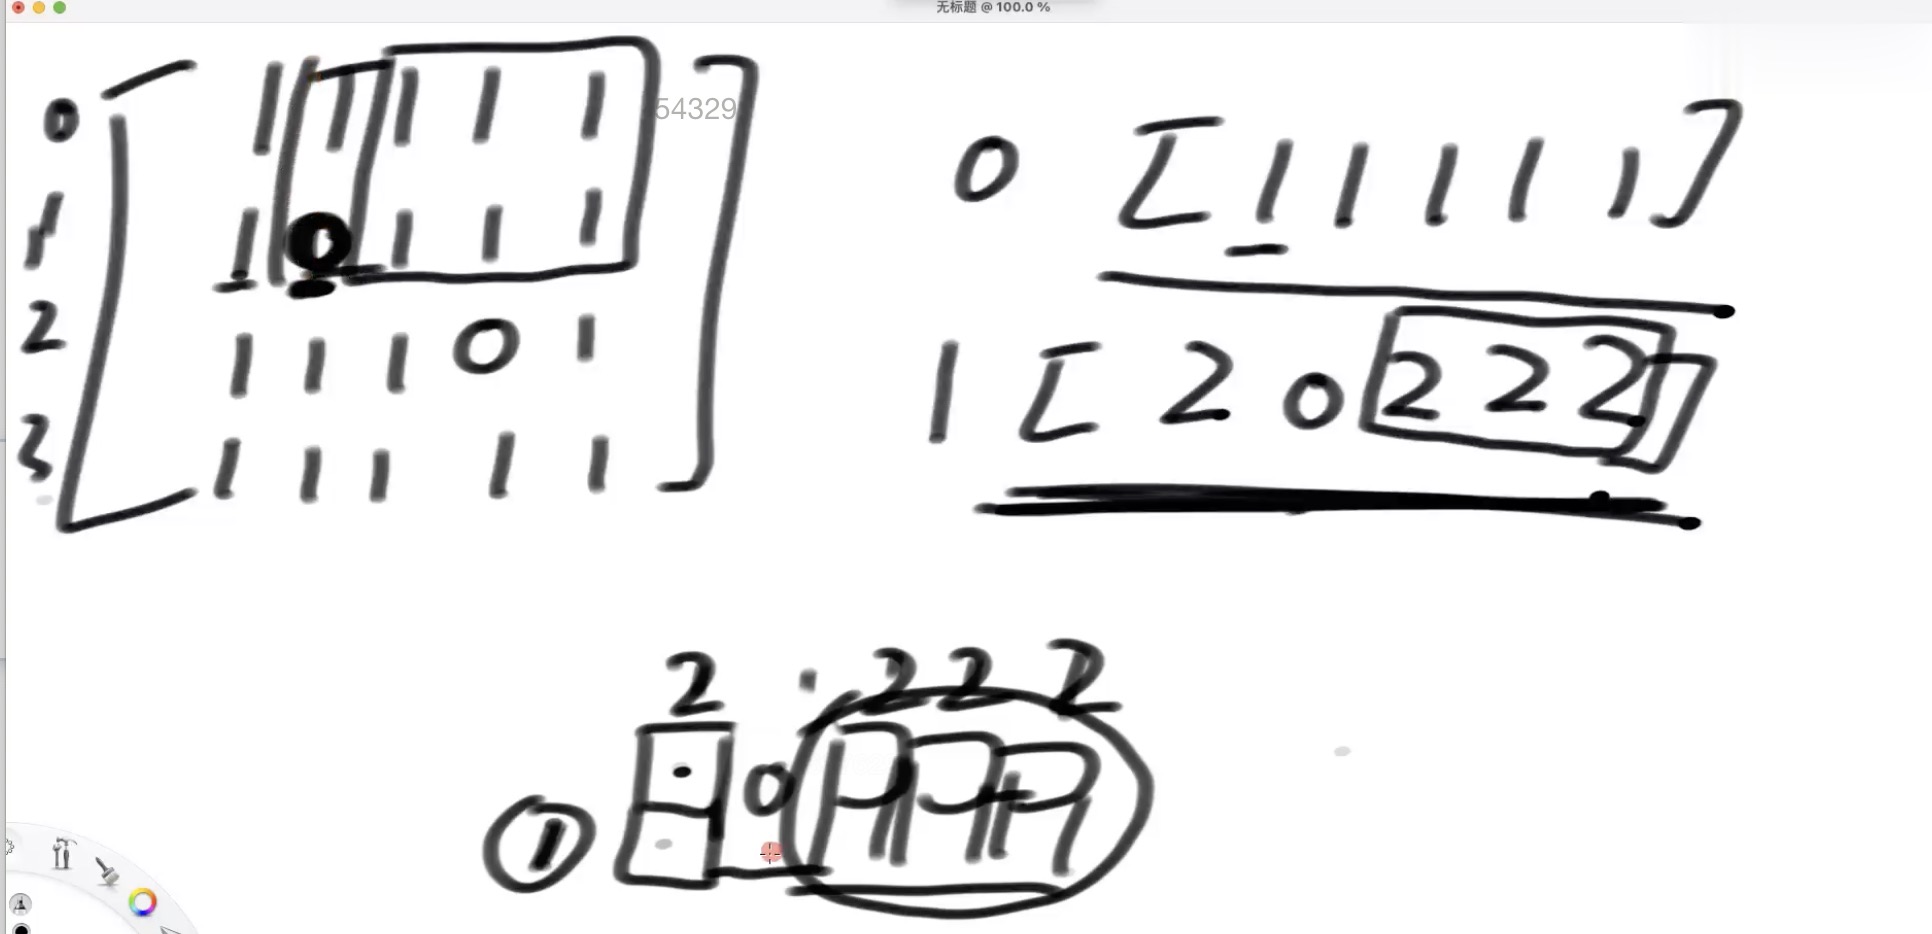 无标题 @ 100.0 %
0 [ 1 1 1 1 1 ]
1 1 0 1 1 1
2 1 1 1 0 1
3 1 1 1 1 1
54329
0 [ 1 1 1 1 1 ]
1 [ 2 0 2 2 2 ]
2 2 2 2
1 0